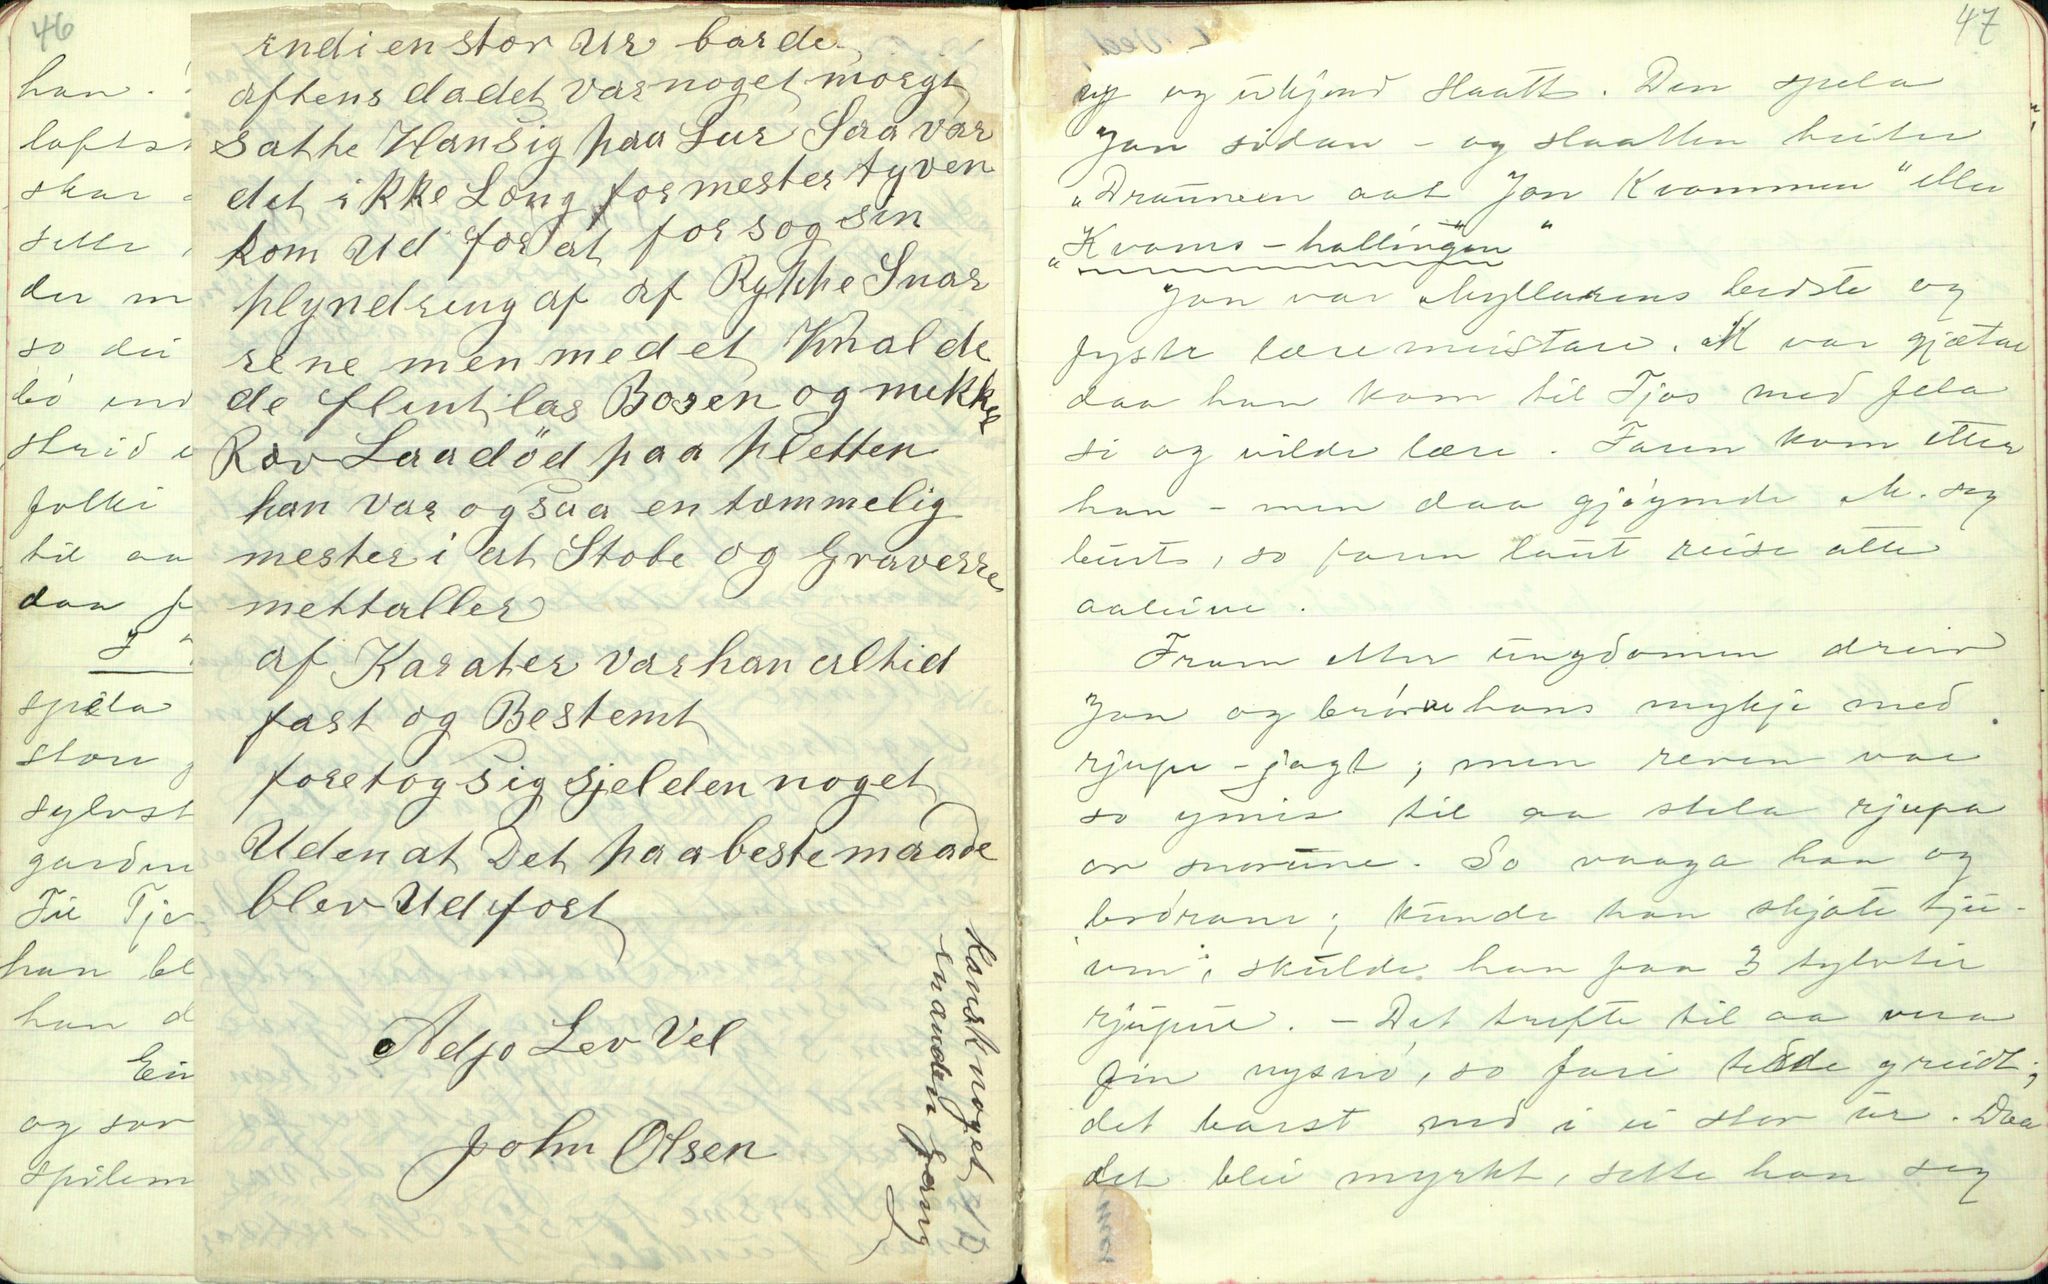 46
han.
lofts
skar
sette
der m
so dei
bö ind
skrid
folki
til aa
daa f
spela
stor
sylvst
garden
Til Tjo
han bl
han d
Ein
og sov
spilem
endi en stor Ur barde
aftens da det var noget morgt
satte Han sig paa Lur Saa var
det ikke Long for mester tyven
kom Ud for at forsog sin
plyndring af af Rykke Snar
rene men med et Knalde
de flint las Bosen og mikkel
Rav Laa död paa pletten
han var ogsaa en tammelig
mester i at Stobe og Graverre
mettaller
af Karater var han altid
fast og Bestemt
foretog sig sjelden noget
Uden at Det paa bestemaade
blev Udfort
Adjo Lev Vel
John Olsen
kansk noget
en anden Gang
47
ny og ukjend slaatt. Den spela
Jon sidan - og slaatten heiter
"Draumen aat Jon Kvammen" eller
"Kvams-hallingen"
Jon var Myllarens beste og
fyste læremeistare. M var gjætar
daa han kom til Tjos med fela
si og vilde lære. Faren kom etter
han - men daa gjöymde M. seg
burt, so faren laut reise atte
aaleine.
Fram etter ungdomen dreiv
Jon og brörane hans mykje med
rjupe-jagt; men reven var
so ymis til aa stela rjupa
or snorune. So vaaga han og
brörane; kunde han skjote tju-
ven, skulde han faa 3 tylvtir
rjupur. - Det trefte til aa vera
fin nysnö, so fari tedde greidt;
det barst ned i ei stor ur. Daa
det blei myrkt, sette han seg